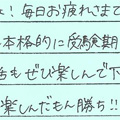 ！毎日お疲れさまで
本格的に受験期
もぜひ楽しんで下
楽しんだもん勝ち!!